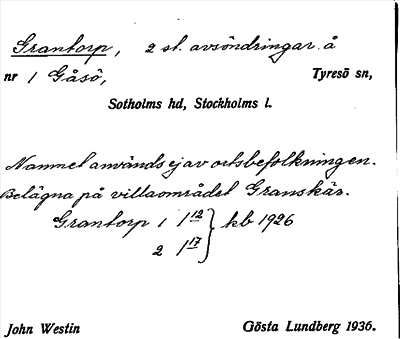 Grantorp, 2 st. avsöndringar å
nr 1 Gåsö, Tyresö sn,
Sotholms hd, Stockholms l.
Namnet används ej av ortsbefolkningen.
Belägna på villaområdet Granskär.
Grantorp 1 1 12 } kb 1926
2 1 17
John Westin Gösta Lundberg 1936.